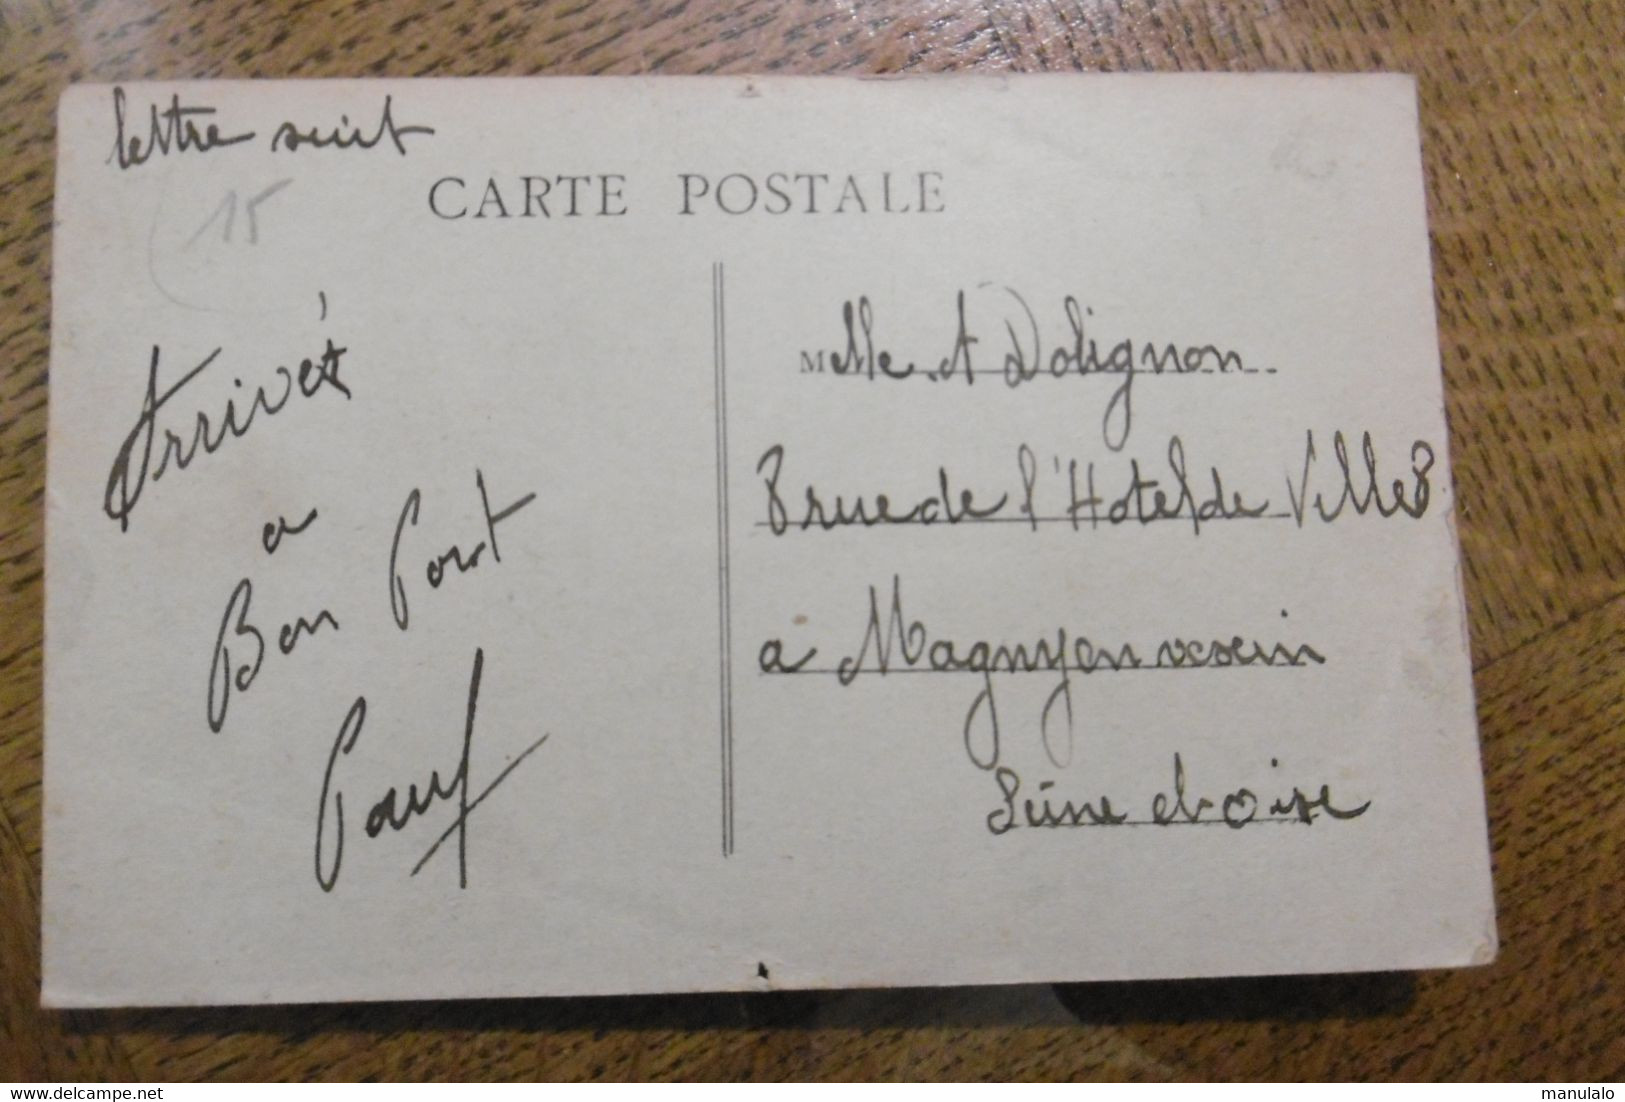 lettre suit
15
CARTE POSTALE
Arrivés
a
Bon Port
Paul
Melle A Dolignon
8 rue de l'Hotel de Ville 8
a Magny en vexin
Seine et oise
delcampe.net
manulalo